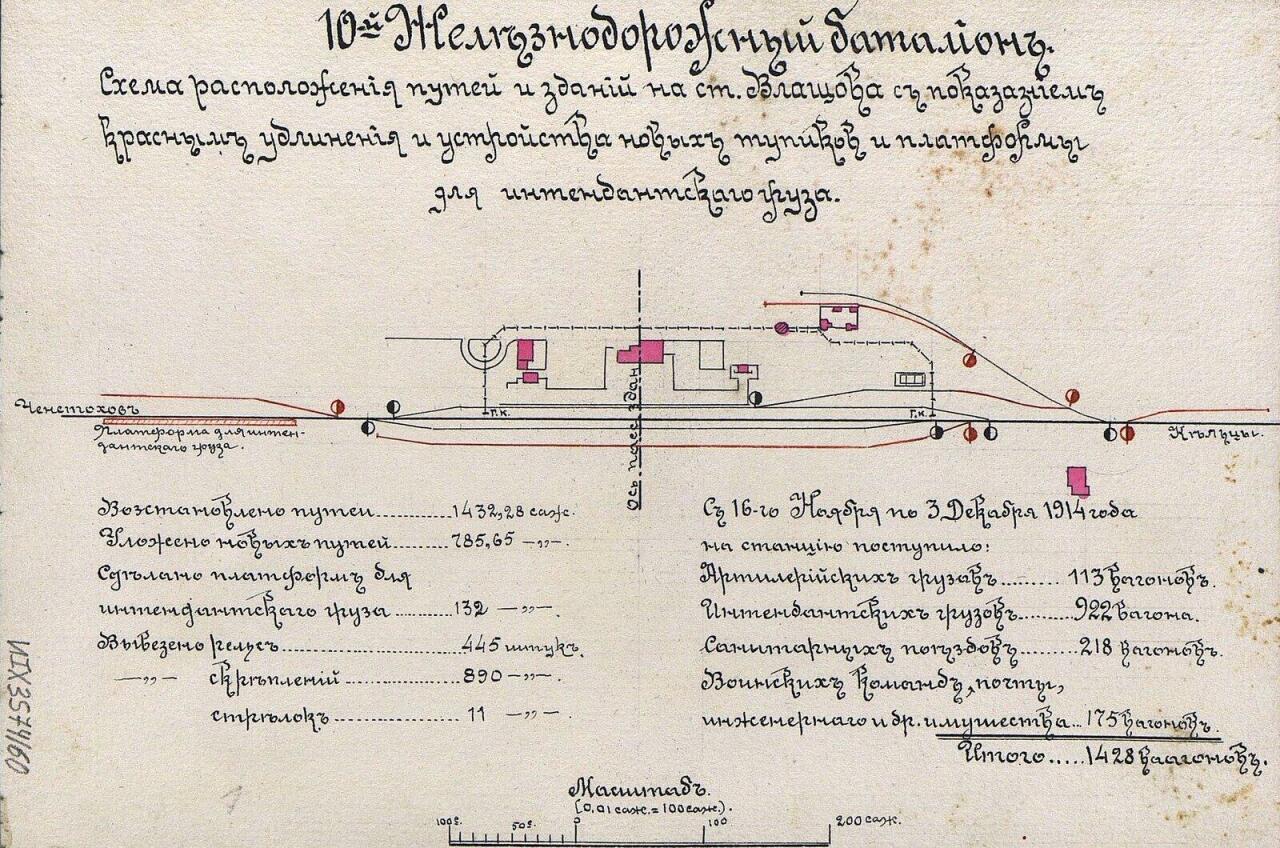 10-й Желѣзнодорожный баталіонъ.
Схема расположенія путей и зданій на ст. Влащова съ показаніемъ
краснымъ удлиненія и устройства новыхъ тупиковъ и платформы
для интендантскаго груза.
Ченстоховъ
Платформа для интен-
дантскаго груза.
Г.К.
Ось пасс. здан.
Г.К.
Кѣльцы.
Возстановлено путей..........1432,28 саж.
Уложено новыхъ путей.......785,65 -„-.
Сдѣлано платформъ для
интендантскаго груза.......132 -„-.
Вывезено рельсъ..................445 штукъ.
-„- скрѣпленій.............890 -„-.
стрѣлокъ...............11 -„-.
Съ 16-го Ноября по 3 Декабря 1914 года
на станцію поступило:
Артилерійскихъ грузовъ........113 вагоновъ.
Интендантскихъ грузовъ.......922 вагона.
Санитарныхъ поѣздовъ........218 вагоновъ.
Воинскихъ командъ, почты,
инженернаго и др. имущества...175 вагоновъ.
Итого.....1428 вагоновъ.
Масштабъ.
(0,01 саж. = 100 саж.).
100с. 50с. 0 100 200 саж.
ИIX35741/60